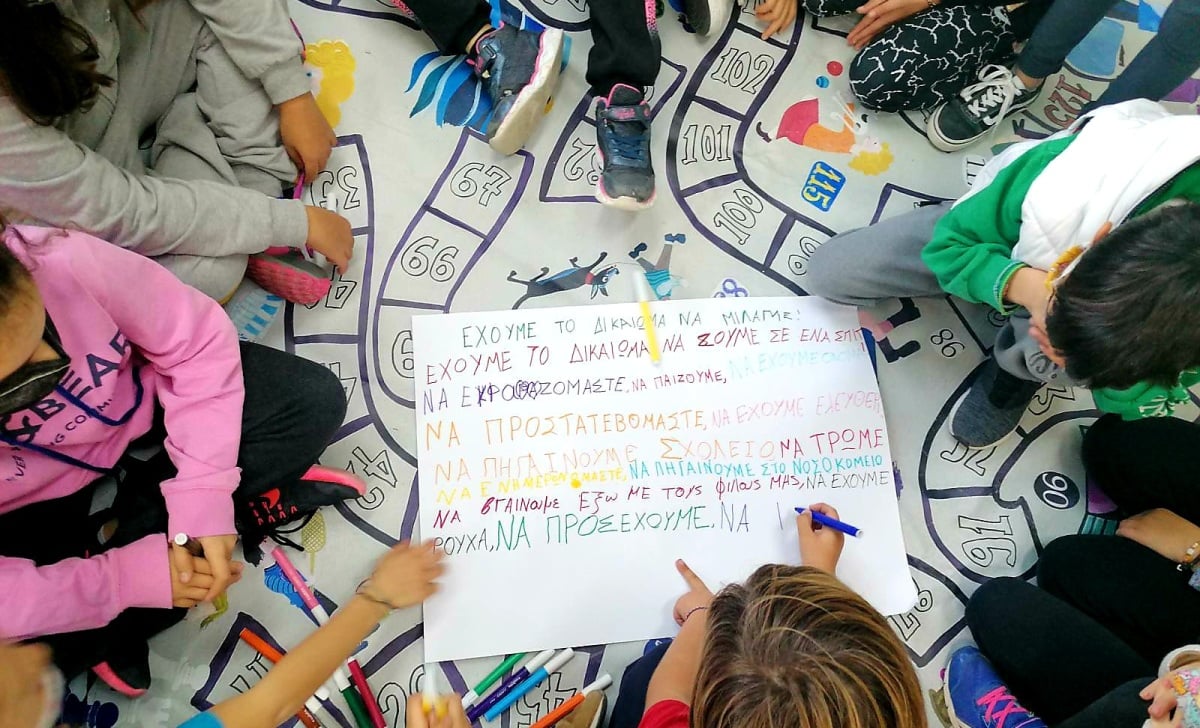 ΕΧΟΥΜΕ ΤΟ ΔΙΚΑΙΩΜΑ ΝΑ ΜΙΛΑΜΕ!
ΕΧΟΥΜΕ ΤΟ ΔΙΚΑΙΩΜΑ ΝΑ ΖΟΥΜΕ ΣΕ ΕΝΑ ΣΠΙΤΙ
ΝΑ ΝΑ ΠΑΙΖΟΥΜΕ, ΝΑ ΕΧΟΥΜΕ
ΝΑ ΠΡΟΣΤΑΤΕΒΟΜΑΣΤΕ, ΝΑ ΕΧΟΥΜΕ ΕΛΕΥΘΕΡΙ
ΝΑ ΠΗΓΑΙΝΟΥΜΕ ΣΧΟΛΕΙΟ, ΝΑ ΤΡΩΜΕ
ΝΑ ΕΝΗΜΕΡΟΝΟΜΑΣΤΕ, ΝΑ ΠΗΓΑΙΝΟΥΜΕ ΣΤΟ ΝΟΣΟΚΟΜΕΙΟ
ΝΑ ΒΓΑΙΝΟΥΜΕ ΕΞΩ ΜΕ ΤΟΥΣ ΦΙΛΟΥΣ ΜΑΣ, ΝΑ ΕΧΟΥΜΕ
ΡΟΥΧΑ, ΝΑ ΠΡΟΣΕΧΟΥΜΕ, ΝΑ
102
101
100
115
125
67
66
98
86
90
91